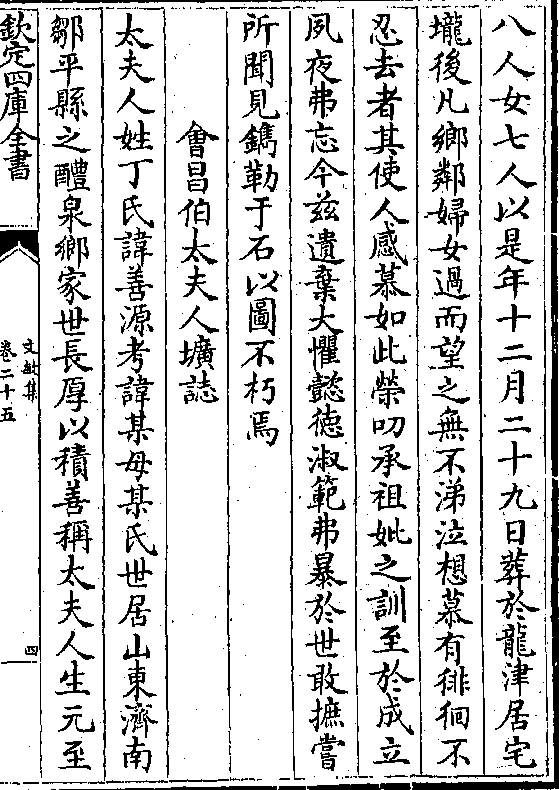 八人女七人以是年十二月二十九日葬於龍津居宅
壠後凡鄉鄰婦女過而望之無不涕泣想慕有徘徊不
忍去者其使人感慕如此榮叨承祖妣之訓至於成立
夙夜弗忘今茲遺棄大懼懿德淑範弗暴於世敢摭嘗
所聞見鐫勒于石以圖不朽焉
會昌伯太夫人壙誌
太夫人姓丁氏諱善源考諱某母某氏世居山東濟南
鄒平縣之醴泉鄉家世長厚以積善稱太夫人生元至
欽定四庫全書
文敏集
卷二十五
四